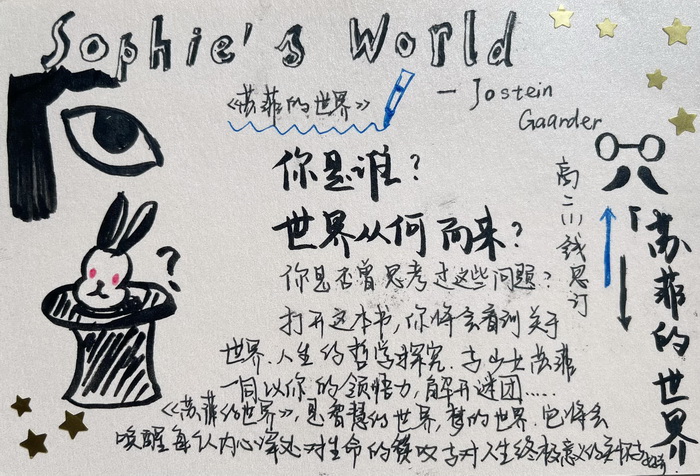 Sophie's World
《苏菲的世界》
— Jostein
Gaarder
你是谁?
世界从何而来?
你是否曾思考过这些问题?
打开这本书,你将会看到关于
世界、人生的哲学探究.与少女苏菲
一同以你的领悟力,解开谜团……
《苏菲的世界》,是智慧的世界,梦的世界.它将会
唤醒每个人内心深处对生命的赞叹与对人生终极意义的关怀与
高二(1)钱思订
?
「苏菲的世界